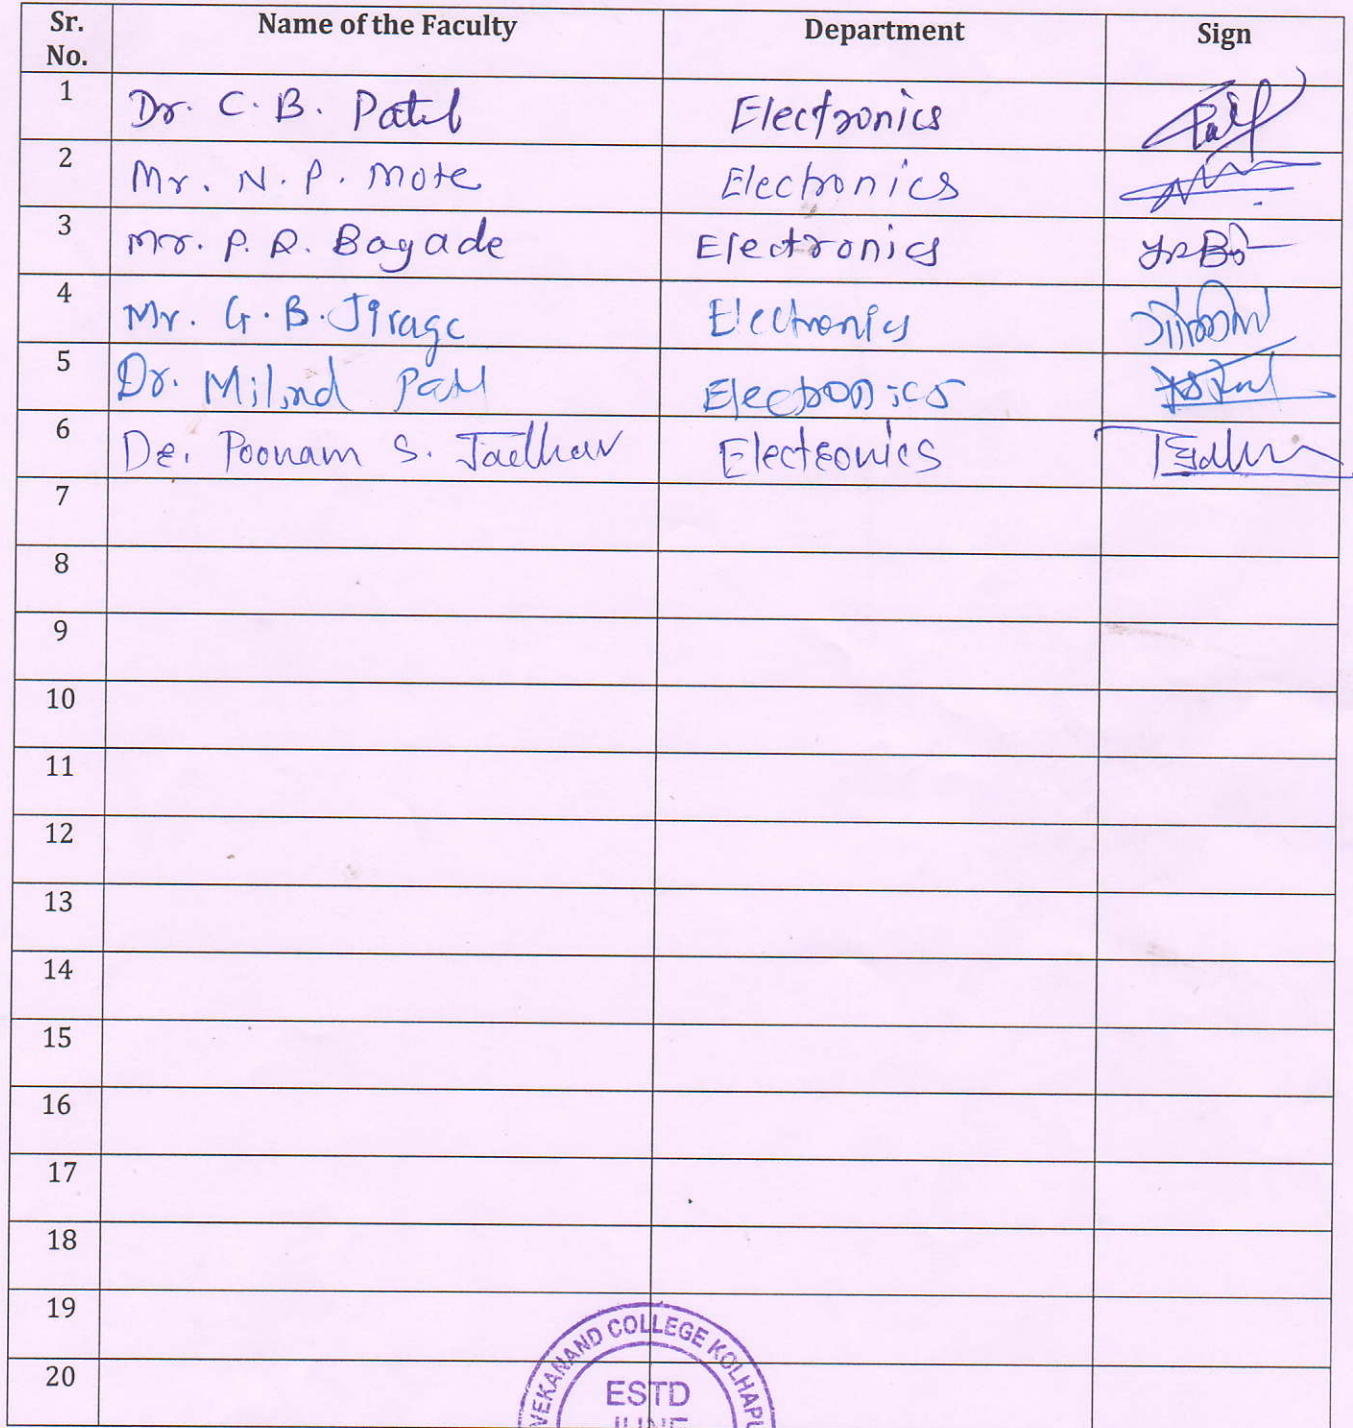 Sr. No. Name of the Faculty Department Sign
1 Dr. C. B. Patil Electronics
2 Mr. N. P. Mote Electronics
3 Mr. P. R. Bagade Electronics
4 Mr. G. B. Jirage Electronics
5 Dr. Milind Patil Electronics
6 Dr. Poonam S. Jadhav Electronics
7
8
9
10
11
12
13
14
15
16
17
18
19
20
VEKANAND COLLEGE KOLHAPU
ESTD
JUNE